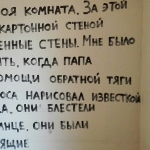 ОЯ КОМНАТА. ЗА ЭТОЙ
КАРТОННОЙ СТЕНОЙ
ЕННЫЕ СТЕНЫ. МНЕ БЫЛО
ТЬ, КОГДА ПАПА
ОМОЩИ ОБРАТНОЙ ТЯГИ
ОСА НАРИСОВАЛ ИЗВЕСТКОЙ
А, ОНИ БЛЕСТЕЛИ
ЛНЦЕ, ОНИ БЫЛИ
ЯЩИЕ